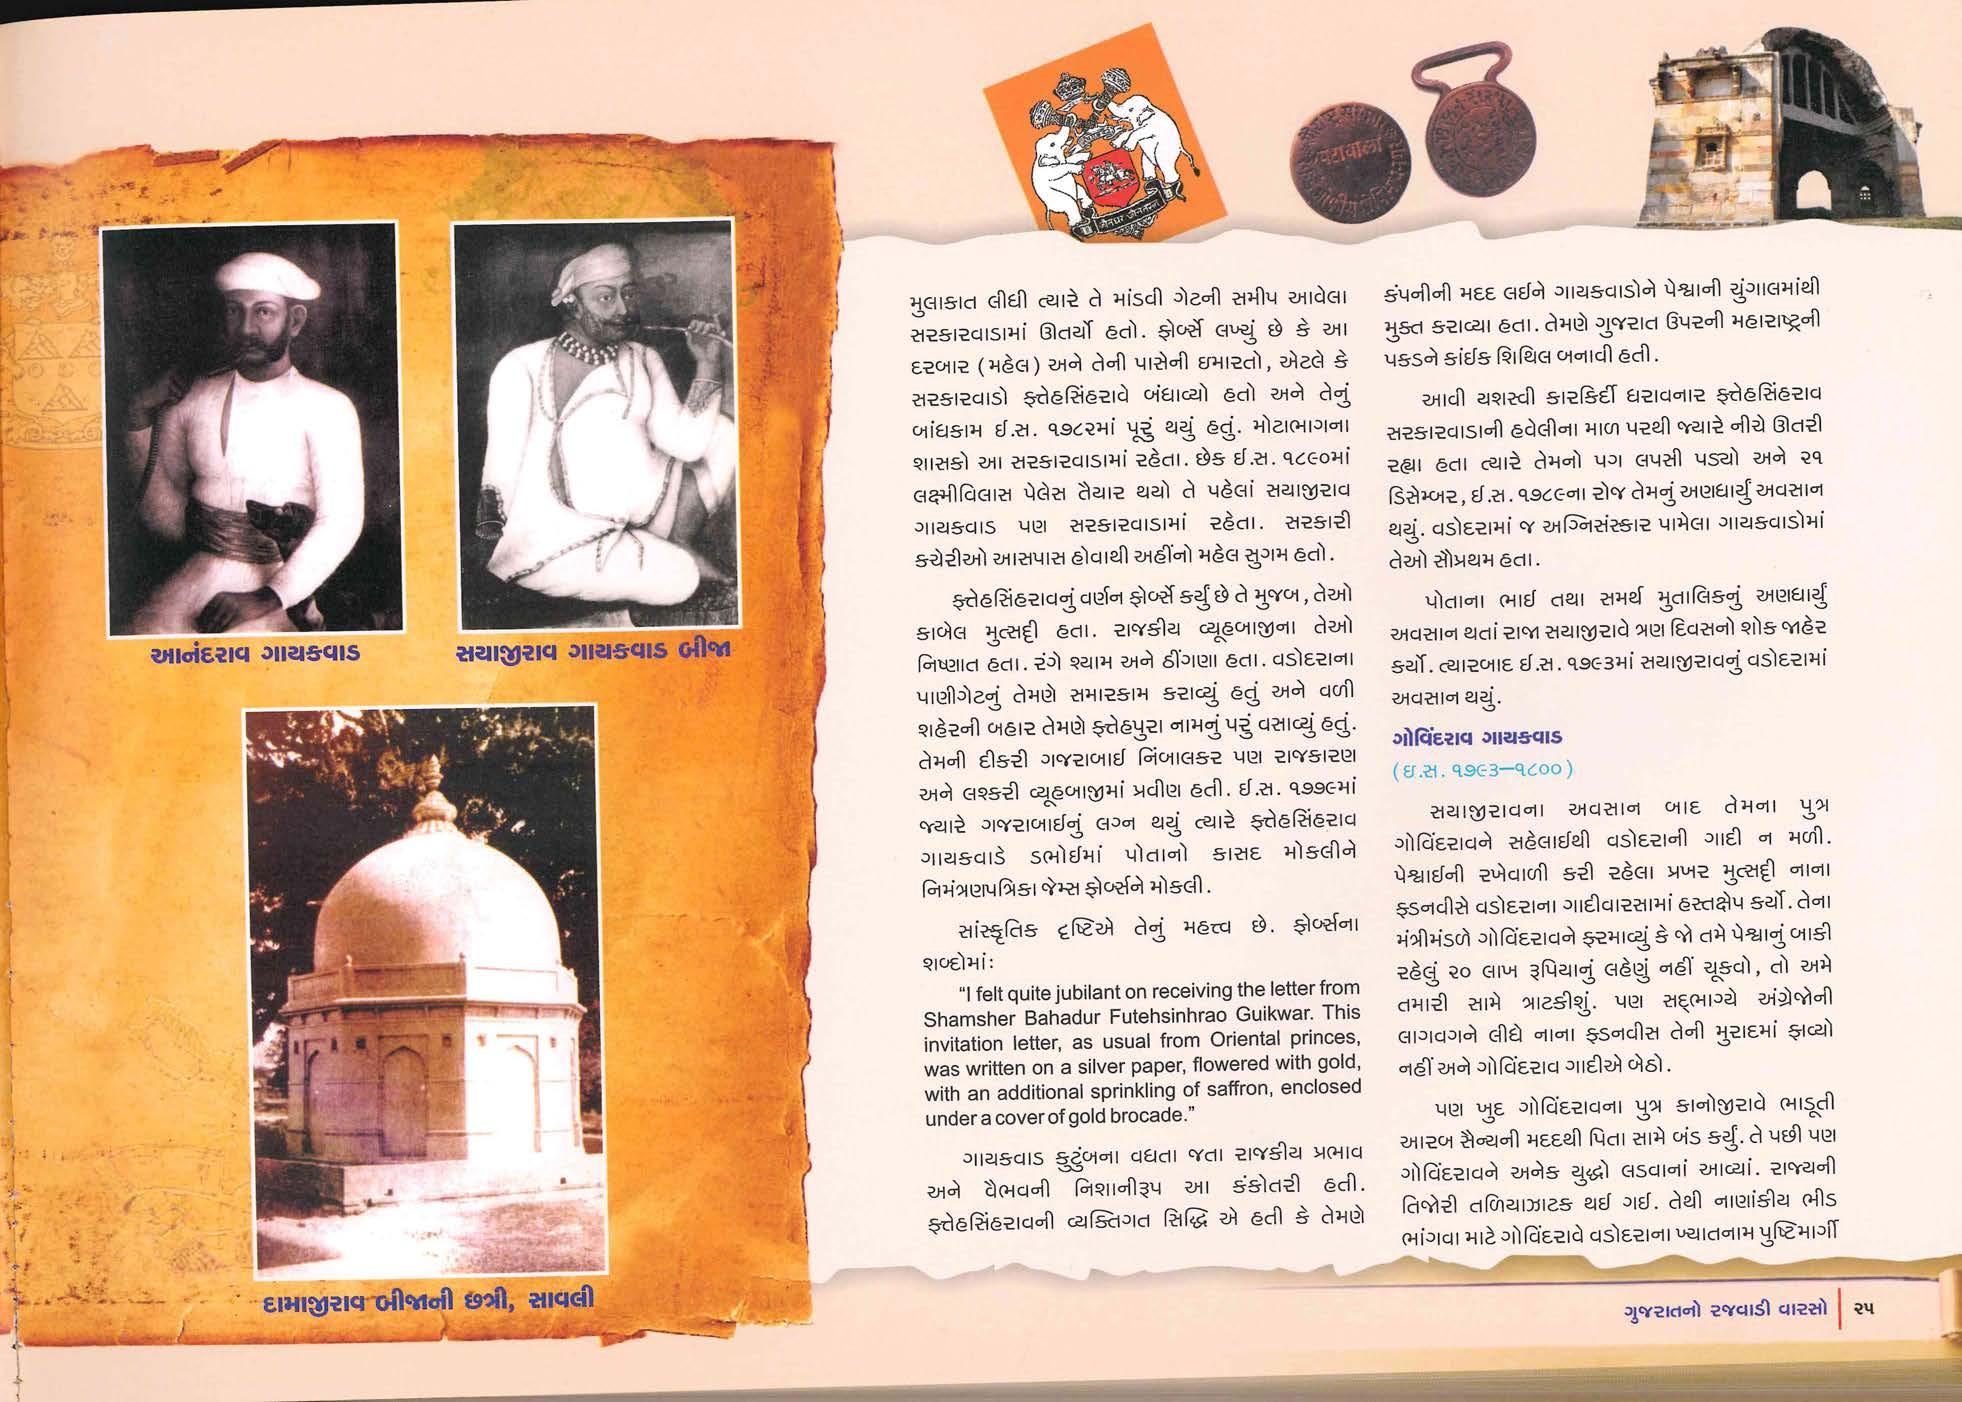 આનંદરાવ ગાયકવાડ
સયાજીરાવ ગાયકવાડ બીજા
દામાજીરાવ બીજાની છત્રી, સાવલી
મુલાકાત લીધી ત્યારે તે માંડવી ગેટની સમીપ આવેલા
સરકારવાડામાં ઊતર્યો હતો. ફોર્બ્સે લખ્યું છે કે આ
દરબાર (મહેલ) અને તેની પાસેની ઇમારતો, એટલે કે
સરકારવાડો ફ્તેહસિંહરાવે બંધાવ્યો હતો અને તેનું
બાંધકામ ઈ.સ. ૧૭૮૨માં પૂરું થયું હતું. મોટાભાગના
શાસકો આ સરકારવાડામાં રહેતા. છેક ઈ.સ. ૧૮૯૦માં
લક્ષ્મીવિલાસ પેલેસ તૈયાર થયો તે પહેલાં સયાજીરાવ
ગાયકવાડ પણ સરકારવાડામાં રહેતા. સરકારી
કચેરીઓ આસપાસ હોવાથી અહીંનો મહેલ સુગમ હતો.
ફ્તેહસિંહરાવનું વર્ણન ફોર્બ્સે કર્યું છે તે મુજબ, તેઓ
કાબેલ મુત્સદ્દી હતા. રાજકીય વ્યૂહબાજીના તેઓ
નિષ્ણાત હતા. રંગે શ્યામ અને ઠીંગણા હતા. વડોદરાના
પાણીગેટનું તેમણે સમારકામ કરાવ્યું હતું અને વળી
શહેરની બહાર તેમણે ફ્તેહપુરા નામનું પરું વસાવ્યું હતું.
તેમની દીકરી ગજરાબાઈ નિંબાલકર પણ રાજકારણ
અને લશ્કરી વ્યૂહબાજીમાં પ્રવીણ હતી. ઈ.સ. ૧૭૭૯માં
જ્યારે ગજરાબાઈનું લગ્ન થયું ત્યારે ફ્તેહસિંહરાવ
ગાયકવાડે ડભોઈમાં પોતાનો કાસદ મોકલીને
નિમંત્રણપત્રિકા જેમ્સ ફોર્બ્સને મોકલી.
સાંસ્કૃતિક દૃષ્ટિએ તેનું મહત્ત્વ છે. ફોર્બ્સના
શબ્દોમાં:
"I felt quite jubilant on receiving the letter from
Shamsher Bahadur Futehsinhrao Guikwar. This
invitation letter, as usual from Oriental princes,
was written on a silver paper, flowered with gold,
with an additional sprinkling of saffron, enclosed
under a cover of gold brocade."
ગાયકવાડ કુટુંબના વધતા જતા રાજકીય પ્રભાવ
અને વૈભવની નિશાનીરૂપ આ કંકોતરી હતી.
ફ્તેહસિંહરાવની વ્યક્તિગત સિદ્ધિ એ હતી કે તેમણે
કંપનીની મદદ લઈને ગાયકવાડોને પેશ્વાની ચુંગાલમાંથી
મુક્ત કરાવ્યા હતા. તેમણે ગુજરાત ઉપરની મહારાષ્ટ્રની
પકડને કાંઈક શિથિલ બનાવી હતી.
આવી યશસ્વી કારકિર્દી ધરાવનાર ફ્તેહસિંહરાવ
સરકારવાડાની હવેલીના માળ પરથી જ્યારે નીચે ઊતરી
રહ્યા હતા ત્યારે તેમનો પગ લપસી પડ્યો અને ૨૧
ડિસેમ્બર, ઈ.સ. ૧૭૮૯ના રોજ તેમનું અણધાર્યું અવસાન
થયું. વડોદરામાં જ અગ્નિસંસ્કાર પામેલા ગાયકવાડોમાં
તેઓ સૌપ્રથમ હતા.
પોતાના ભાઈ તથા સમર્થ મુતાલિકનું અણધાર્યું
અવસાન થતાં રાજા સયાજીરાવે ત્રણ દિવસનો શોક જાહેર
કર્યો. ત્યારબાદ ઈ.સ. ૧૭૯૩માં સયાજીરાવનું વડોદરામાં
અવસાન થયું.
ગોવિંદરાવ ગાયકવાડ
(ઇ.સ. ૧૭૯૩–૧૮૦૦)
સયાજીરાવના અવસાન બાદ તેમના પુત્ર
ગોવિંદરાવને સહેલાઈથી વડોદરાની ગાદી ન મળી.
પેશ્વાઈની રખેવાળી કરી રહેલા પ્રખર મુત્સદ્દી નાના
ફ્ડનવીસે વડોદરાના ગાદીવારસામાં હસ્તક્ષેપ કર્યો. તેના
મંત્રીમંડળે ગોવિંદરાવને ફ્રમાવ્યું કે જો તમે પેશ્વાનું બાકી
રહેલું ૨૦ લાખ રૂપિયાનું લહેણું નહીં ચૂકવો, તો અમે
તમારી સામે ત્રાટકીશું. પણ સદ્ભાગ્યે અંગ્રેજોની
લાગવગને લીધે નાના ફ્ડનવીસ તેની મુરાદમાં ફાવ્યો
નહીં અને ગોવિંદરાવ ગાદીએ બેઠો.
પણ ખુદ ગોવિંદરાવના પુત્ર કાનોજીરાવે ભાડૂતી
આરબ સૈન્યની મદદથી પિતા સામે બંડ કર્યું. તે પછી પણ
ગોવિંદરાવને અનેક યુદ્ધો લડવાનાં આવ્યાં. રાજ્યની
તિજોરી તળિયાઝાટક થઈ ગઈ. તેથી નાણાંકીય ભીડ
ભાંગવા માટે ગોવિંદરાવે વડોદરાના ખ્યાતનામ પુષ્ટિમાર્ગી
ગુજરાતનો રજવાડી વારસો | ૨૫
પટાવાલા